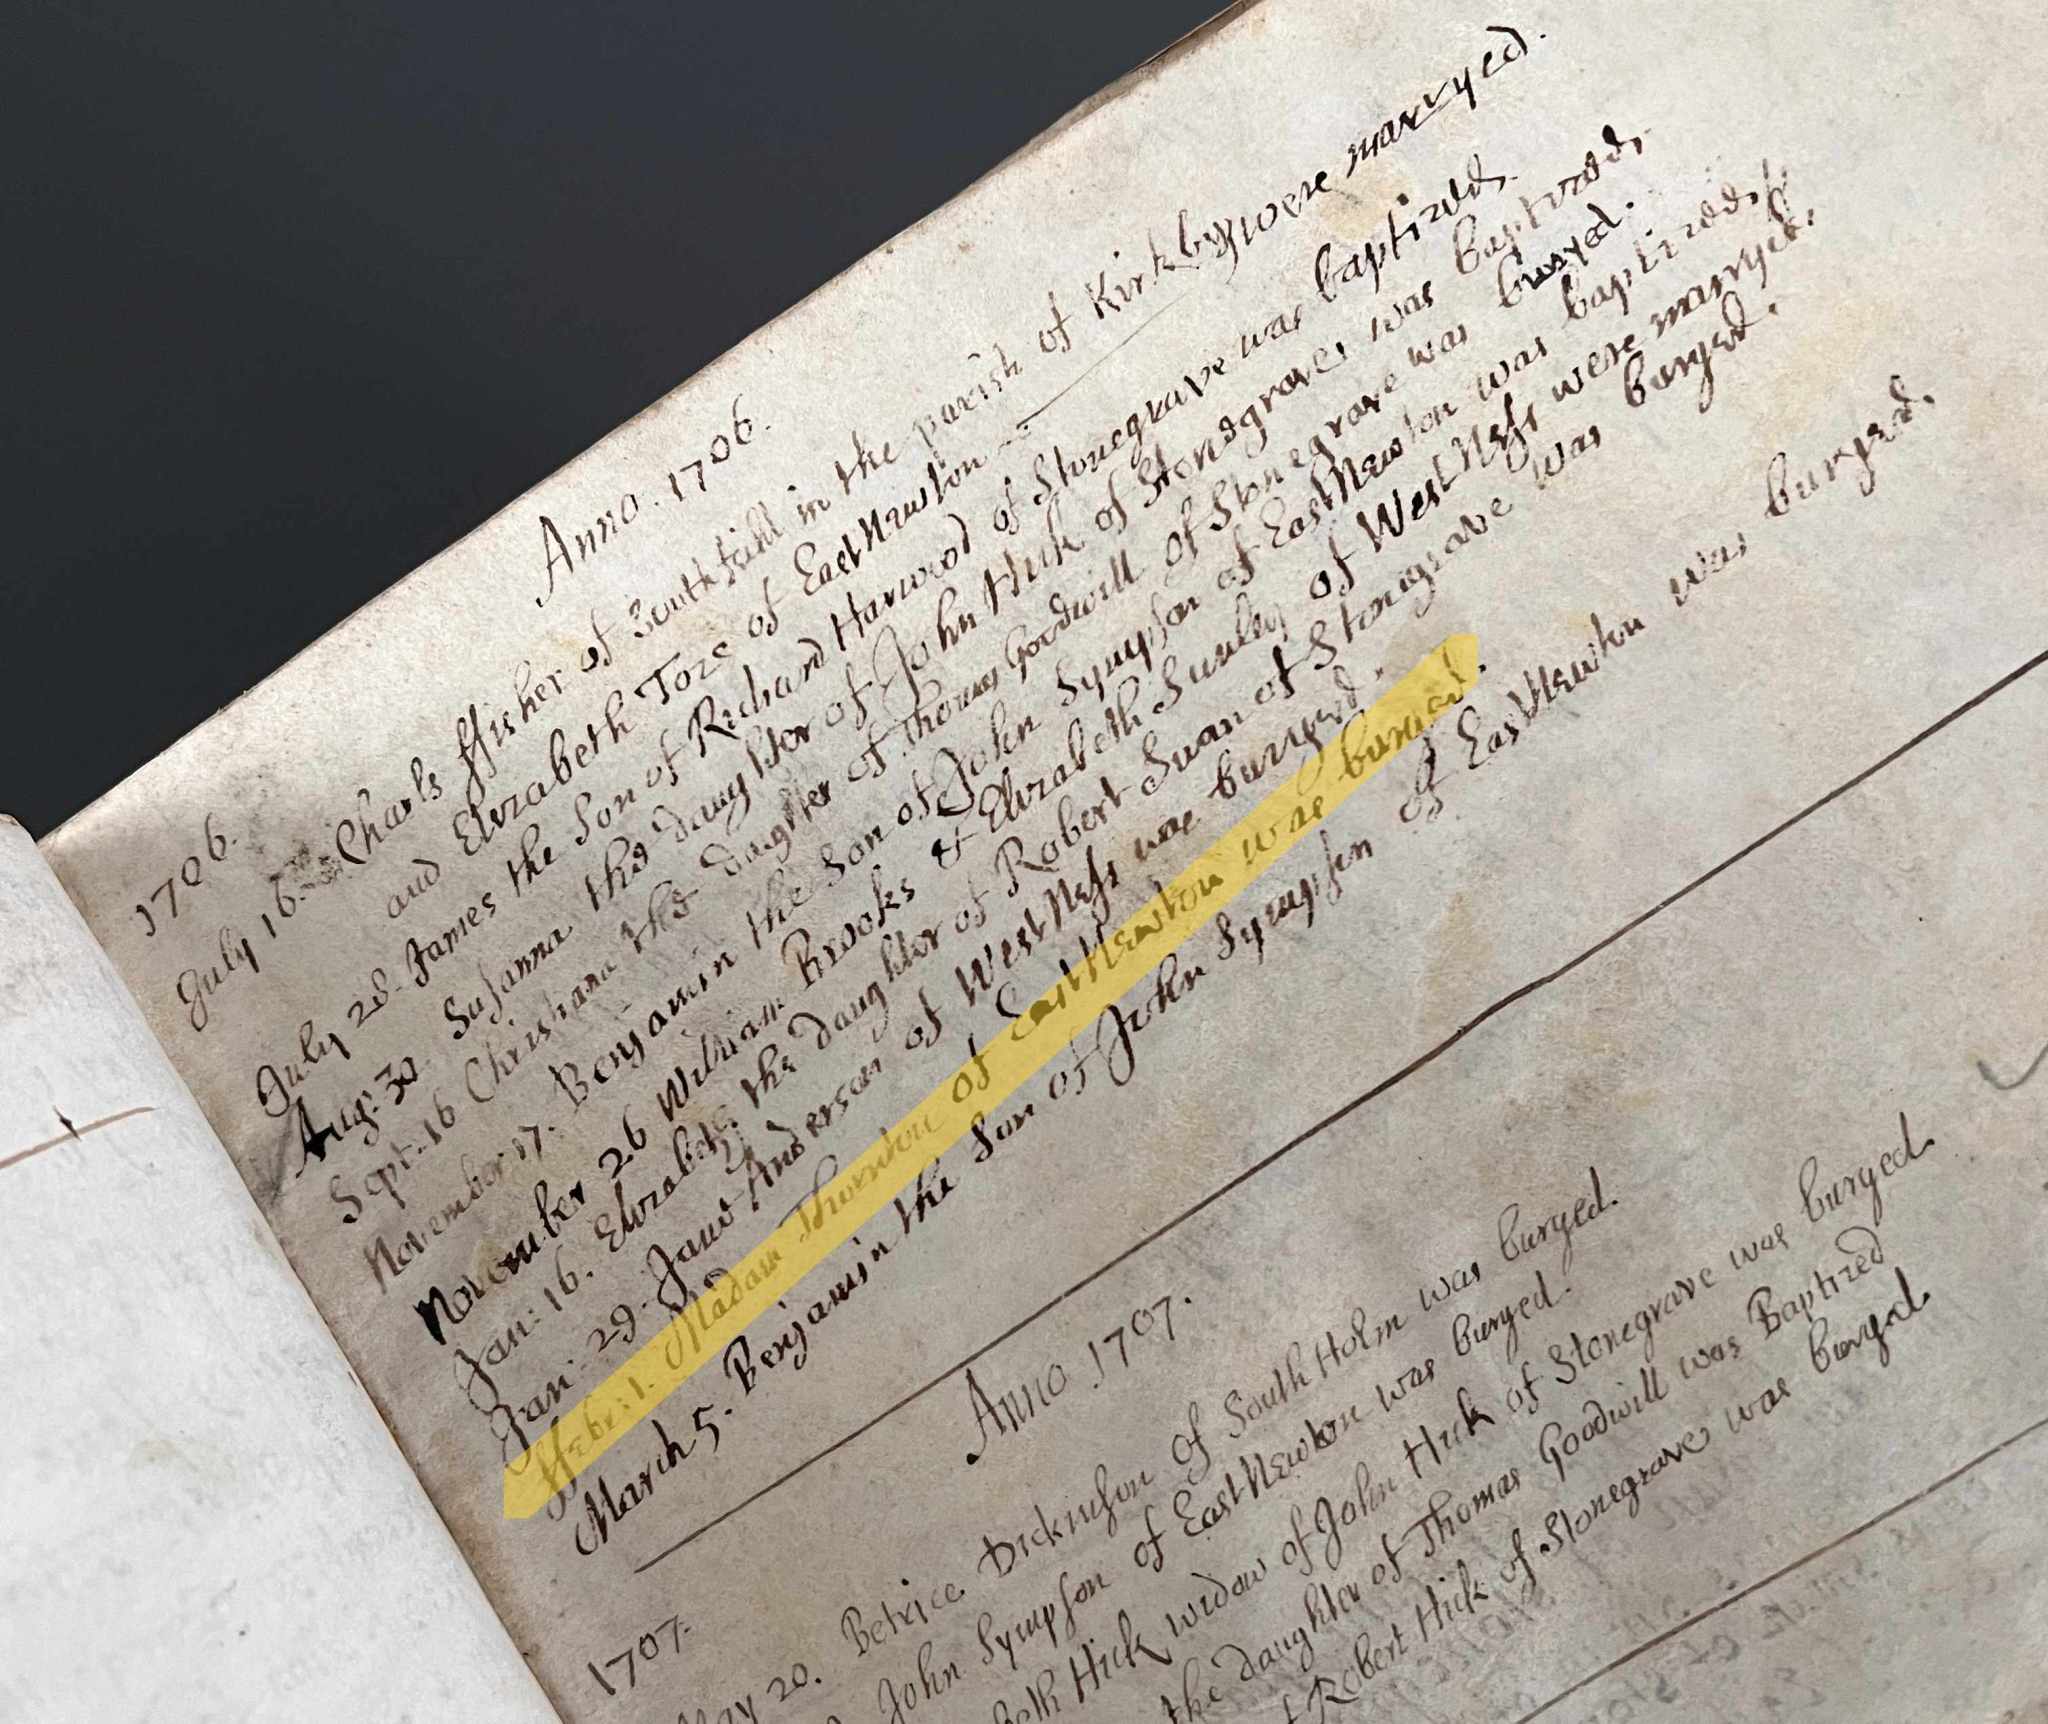 Anno. 1706.
1706.
July 16. Charls ffisher of in the parish of Kirkby were marryed.
and Elizabeth Tore of East Newton
July 28. James the Son of Richard Harwood of Stonegrave was baptized.
Aug: 30. Susanna the daughter of John Hick of Stonegrave was baptized.
Sept. 16 Christiana the daughter of Thomas Goodwill of Stonegrave was buryed.
November 17. Benjamin the Son of John Sympson of East Newton was baptized.
November 26 William Brooks & Elizabeth Sunley of West Ness were marryed.
Jan: 16. Elizabeth the daughter of Robert Swan of Stonegrave was buryed.
Jan: 29. Jane Anderson of West Ness was buryed.
ffebr: 1. Madam Thornton of East Newton was buryed.
March 5. Benjamin the Son of John Sympson of East Newton was buryed.
Anno 1707.
1707.
May 20. Betrice Dickinson of South Holm was buryed.
John Sympson of East Newton was buryed.
beth Hick widow of John Hick of Stonegrave was buryed.
the daughter of Thomas Goodwill was Baptized
Robert Hick of Stonegrave was buryed.